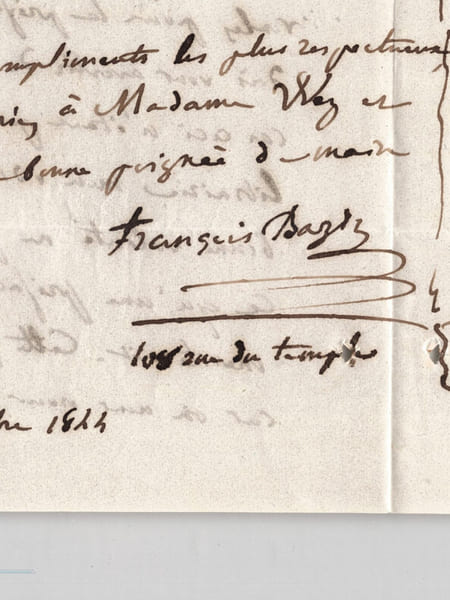 compliments les plus respectueux
à Madame Wey et
bonne poignée de main
François Bazin
108 rue du temple
bre 1844